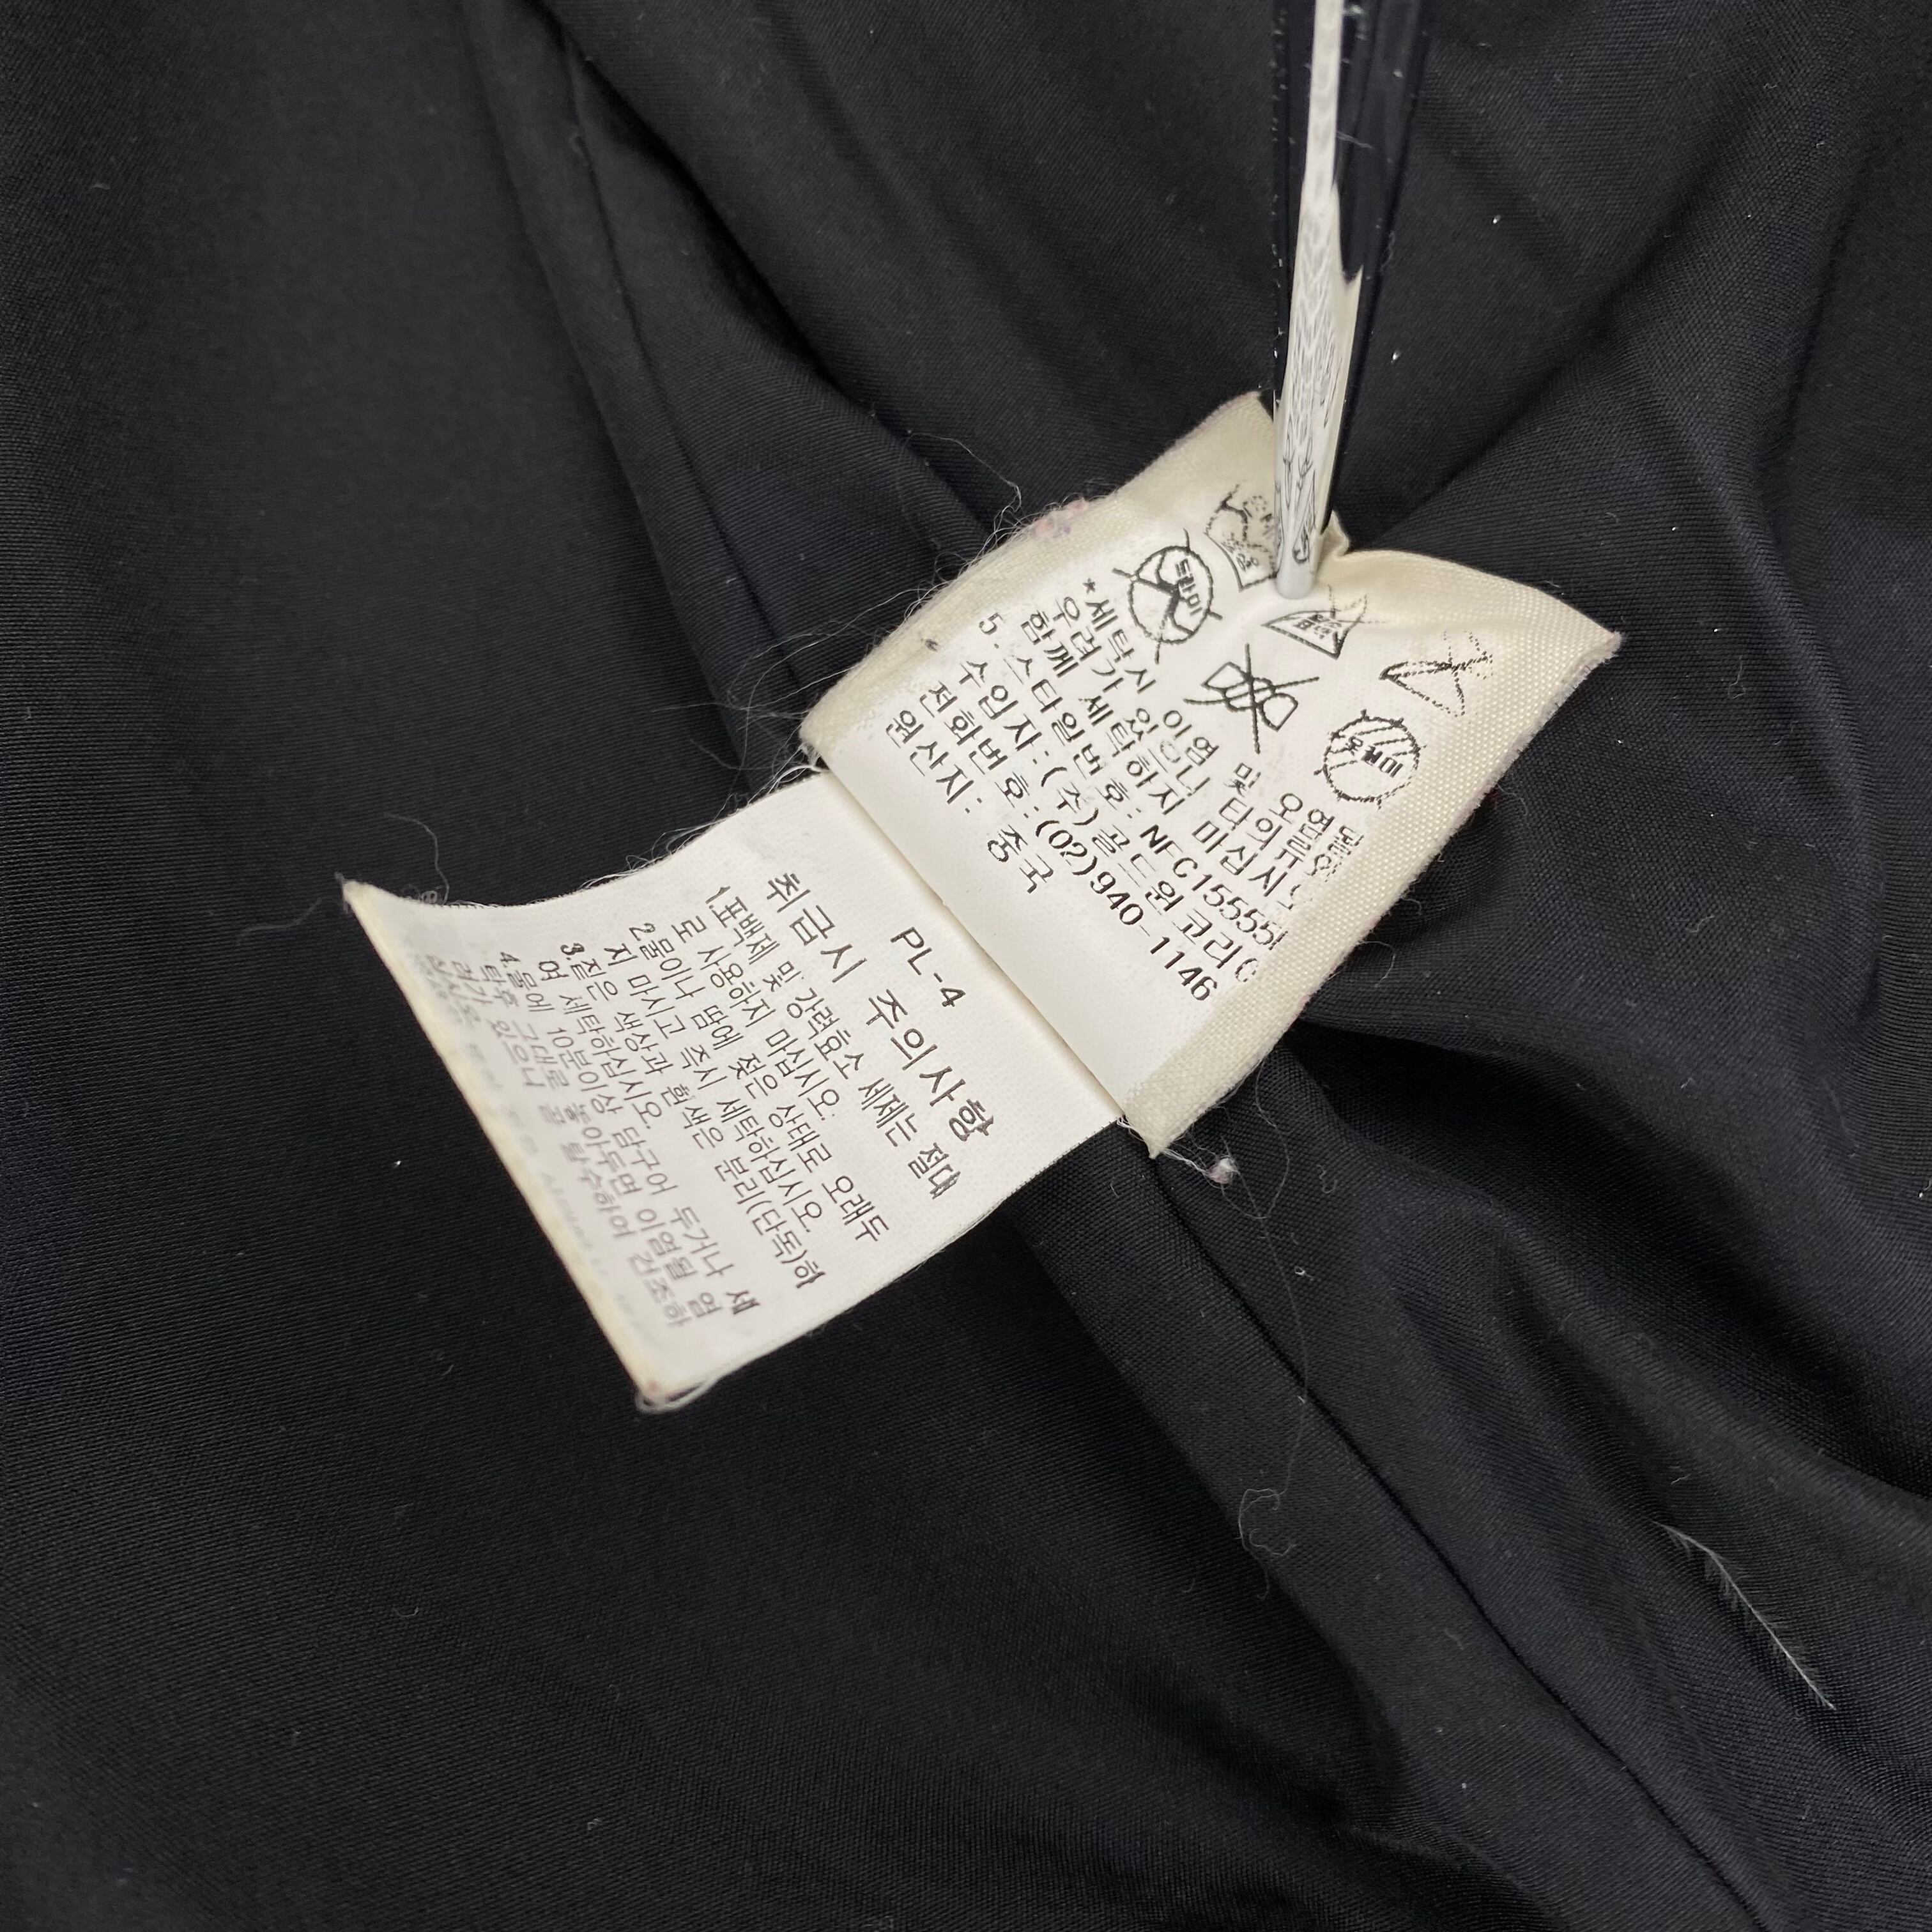 드라이
*세탁시 이염 및 오염될
우려가 있으니 타의류와
함께 세탁하지 마십시오
5.스타일번호: NFC15555
수입자:(주)골드원코리아
전화번호:(02)940-1146
원산지: 중국
PL-4
취급시 주의사항
1.표백제 및 강력효소 세제는 절대
로 사용하지 마십시오.
2.물이나 땀에 젖은 상태로 오래두
지 마시고 즉시 세탁하십시오.
3.짙은 색상과 흰색은 분리(단독)하
여 세탁하십시오.
4.물에 10분이상 담구어 두거나 세
탁후 그대로 놓아두면 이염될 염
려가 있으니 탈수하여 건조하